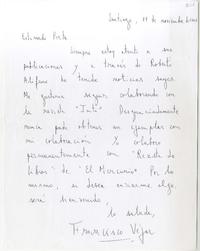 Santiago, 11 de noviembre
Estimado Poeta
Siempre estoy atento a sus
publicaciones y a través de Roberto
Alifano he tenido noticias suyas.
Me gustaría seguir colaborando con
la revista "
Desgraciadamente
nunca pude obtener un ejemplar con
mi colaboración. Yo colaboro
permanentemente con "Revista de
Libros" de "El Mercurio". Por lo
mismo, si desea enviarme algo,
será bienvenido,
lo saluda,
Francisco Véjar